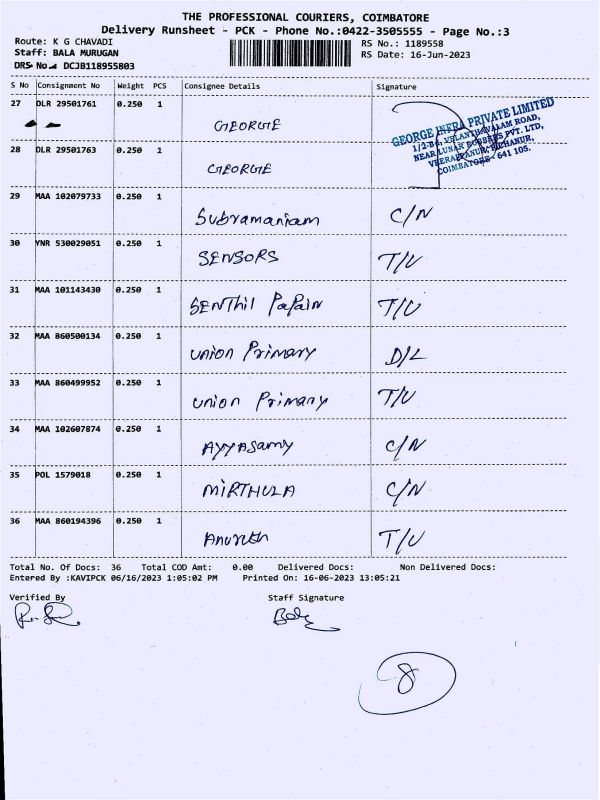 THE PROFESSIONAL COURIERS, COIMBATORE
Delivery Runsheet - PCK - Phone No.:0422-3505555 - Page No.:3
Route: K G CHAVADI RS No.: 1189558
Staff: BALA MURUGAN RS Date: 16-Jun-2023
DRS No. DCJB118955803
S No Consignment No Weight PCS Consignee Details Signature
27 DLR 29501761 0.250 1 GEORGE
GEORGE INFRA PRIVATE LIMITED
NEAR LUNAR RUBBERS PVT. LTD,
COIMBATORE - 641 105.
28 DLR 29501763 0.250 1 GEORGE
29 MAA 102079733 0.250 1 Subramaniam C/N
30 YNR 530029051 0.250 1 SENSORS T/U
31 MAA 101143430 0.250 1 SENThil PaPain T/U
32 MAA 860500134 0.250 1 union Primary D/L
33 MAA 860499952 0.250 1 union Primary T/U
34 MAA 102607874 0.250 1 AyyAsamy C/N
35 POL 1579018 0.250 1 MIRTHULA C/N
36 MAA 860194396 0.250 1 T/U
Total No. Of Docs: 36 Total COD Amt: 0.00 Delivered Docs: Non Delivered Docs:
Entered By :KAVIPCK 06/16/2023 1:05:02 PM Printed On: 16-06-2023 13:05:21
Verified By Staff Signature
8